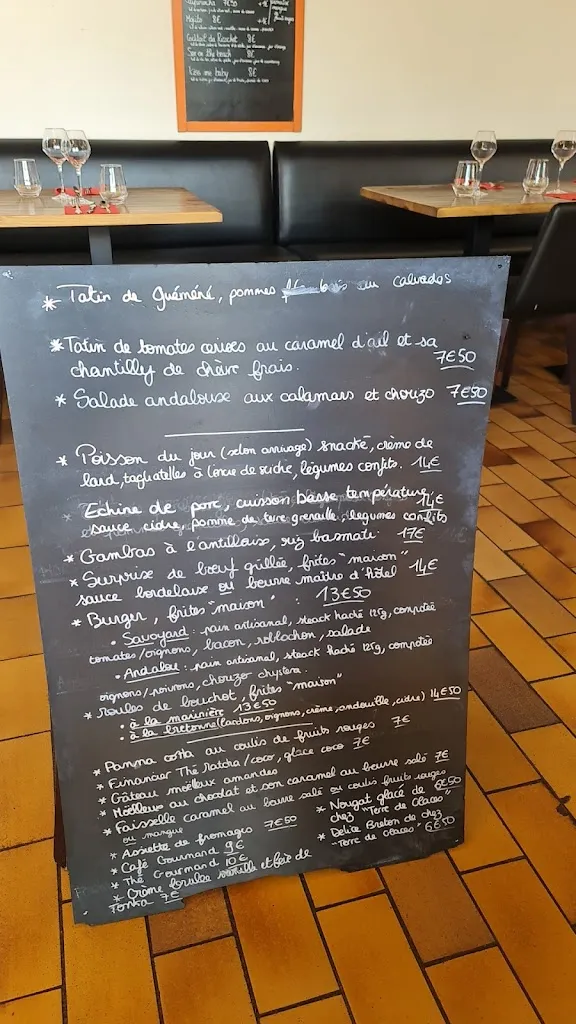 Mojito 8€
Cocktail du Rocher 8€
Sex on the beach 8€
Kiss me baby 8€
* Tatin de Guémené, pommes au calvados
* Tatin de tomates cerises au caramel d'ail et sa
chantilly de chèvre frais. 7€50
* Salade andalouse aux calamars et chorizo 7€50
* Poisson du jour (selon arrivage) snacké, crème de
lard, tagliatelles à l'encre de seiche, légumes confits. 14€
* Echine de porc, cuisson basse température, 14€
sauce cidre, pomme de terre grenaille, légumes confits
* Gambas à l'antillaise, riz basmati 17€
* Surprise de bœuf grillée, frites "maison"
sauce bordelaise ou beurre maître d'hôtel 14€
* Burger, frites "maison" : 13€50
• Savoyard : pain artisanal, steack haché 125g, compotée
tomates/oignons, bacon, reblochon, salade
• Andalou : pain artisanal, steack haché 125g, compotée
oignons/poivrons, chorizo
* Moules de bouchot, frites "maison"
• à la marinière 13€50
• à la bretonne (lardons, oignons, crème, andouille, cidre) 14€50
* Panna cotta au coulis de fruits rouges 7€
* Financier Thé matcha/coco, glace coco 7€
* Gâteau moëlleux amandes
* Moëlleux au chocolat et son caramel au beurre salé 7€
* Faisselle caramel au beurre salé ou coulis fruits rouges
ou mangue 6€50
* Assiette de fromages 7€50
* Café Gourmand 9€
* Thé Gourmand 10€
* Crème brulée vanille et fève de
Tonka 7€
* Nougat glacé de
chez "Terre de Glaces"
* Délice Breton de chez
"Terre de Glaces" 6€50